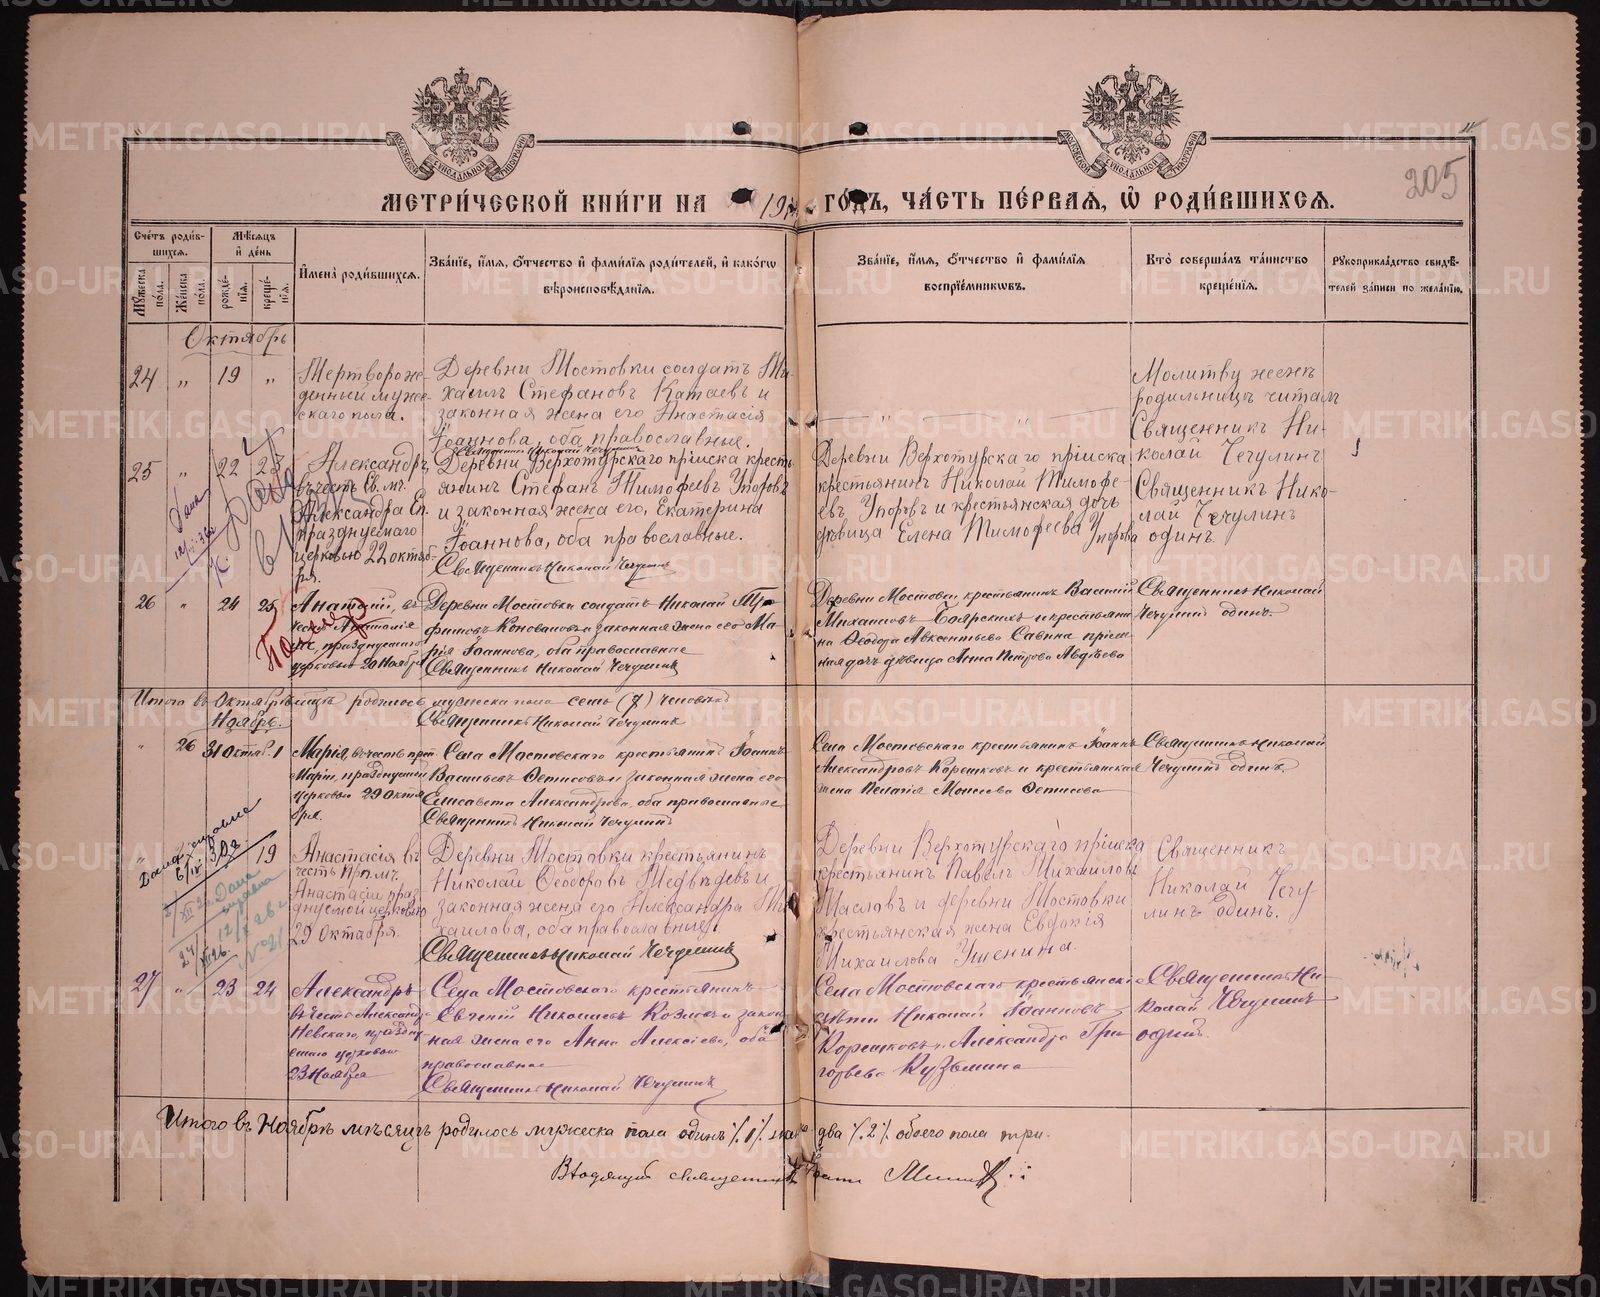 МЕТРИ́ЧЕСКОЙ КНИ́ГИ НА 19 ГО́ДЪ, ЧА́СТЬ ПЕ́РВАЯ, Ѡ҆ РОДИ́ВШИХСЯ.
205
Сче́тъ роди́в-
шихся.
Мѣ́сяцъ
и҆ де́нь
Мꙋ́жеска по́ла.
Же́нска по́ла.
рожде́-
нїя.
креще́-
нїя.
И҆мена̀ роди́вшихся.
Зва́нїе, и҆́мя, ѻ҆́тчество и҆ фами́лїя роди́телей, и҆ како́гѡ
вѣроисповѣ́данїя.
Зва́нїе, и҆́мя, ѻ҆́тчество и҆ фами́лїя
воспрїе́мникѡвъ.
Кто̀ соверша́лъ та́инство
креще́нїя.
Рꙋкоприкла́дство свидѣ́-
телей за́писи по жела́нїю.
Октябрь
24 " 19 "
Мертворож-
денный муже-
скаго пола.
Деревни Мостовки солдатъ Ми-
хаилъ Стефановъ Катаевъ и
законная жена его Анастасія
Іоаннова, оба православные.
Священникъ Николай Чечулинъ
Молитву женѣ
родильницѣ читалъ
Священникъ Ни-
колай Чечулинъ
25 " 22 23
Александръ,
въ честь Св. мч.
Александра Еп.
празднуемаго
церковью 22 октяб-
ря.
Деревни Верхотурскаго пріиска кресть-
янинъ Стефанъ Тимофеевъ Упоровъ
и законная жена его, Екатерина
Іоаннова, оба православные.
Священникъ Николай Чечулинъ
Деревни Верхотурскаго пріиска
крестьянинъ Николай Тимофе-
евъ Упоровъ и крестьянская дочь
дѣвица Елена Тимофеева Упорова
Священникъ Нико-
лай Чечулинъ
одинъ.
26 " 24 25
Анатолій, въ
честь Анатолія
празднуемаго
церковью 20 Ноября
Деревни Мостовки солдатъ Николай
Коноваловъ и законная жена его Ма-
рія Іоаннова, оба православные
Священникъ Николай Чечулинъ
Деревни Мостовки крестьянинъ Василій
Михаиловъ Боярскихъ и крестьяни
на Ѳеодора Авксентьева Савина пріем-
ная дочь дѣвица Анна Петрова Авдѣева
Священникъ Николай
Чечулинъ одинъ.
Итого въ Октябрѣ мѣсяцѣ родилось мужеска пола семь (7) человѣкъ
Священникъ Николай Чечулинъ
Ноябрь.
" 26 31 Октяб. 1
Марія, въ честь
Маріи, празднуемой
церковью 29 Октя
бря.
Села Мостовскаго крестьянинъ Іоаннъ
Васильевъ Ѳетисовъ и законная жена его
Елисавета Александрова, оба православные
Священникъ Николай Чечулинъ
Села Мостовскаго крестьянинъ Іоаннъ
Александровъ Корешковъ и крестьянская
жена Пелагія Моисеева Ѳетисова
Священникъ Николай
Чечулинъ одинъ.
19
Анастасія въ
честь Прпмч.
Анастасіи праз-
днуемой церковью
29 Октября.
Деревни Мостовки крестьянинъ
Николай Ѳеодоровъ Медвѣдевъ и
законная жена его Александра Ми-
хаилова, оба православные
Священникъ Николай Чечулинъ
Деревни Верхотурскаго пріиска
крестьянинъ Павелъ Михаиловъ
Масловъ и деревни Мостовки
крестьянская жена Евдокія
Михаилова Ушенина.
Священникъ
Николай Чечу
линъ Одинъ.
27 " 23 24
Александръ
въ честь Александр
Невскаго, праздну
емаго церковью
23 Ноября
Села Мостовскаго крестьянинъ
Евгеній Николаевъ Козловъ и закон
ная жена его Анна Алексіева, оба
православные
Священникъ Николай Чечулинъ
Села Мостовскаго крестьянскі
дѣти Николай Іоанновъ
Корешковъ и Александра Гри
горьева Кузьмина
Священникъ Ни-
колай Чечулинъ
одинъ.
Итого въ Ноябрѣ мѣсяцѣ родилось мужеска пола одинъ /.1/. два /.2/. обоего пола три.
METRIKI.GASO-URAL.RU